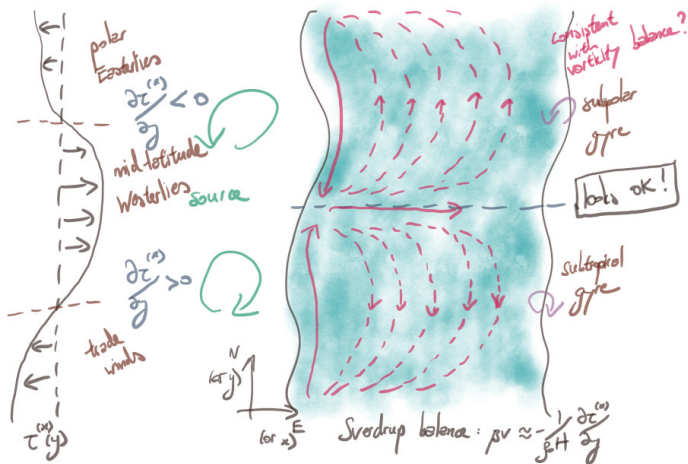 polar
Easterlies
∂τ^(x)/∂y < 0
mid-latitude
Westerlies
source
∂τ^(x)/∂y > 0
trade
winds
τ^(x)(y)
consistent
with
vorticity balance?
subpolar
gyre
looks OK!
subtropical
gyre
N
(or y)
E
(or x)
Sverdrup balance: βv ≈ - 1/ρ₀H ∂τ^(x)/∂y